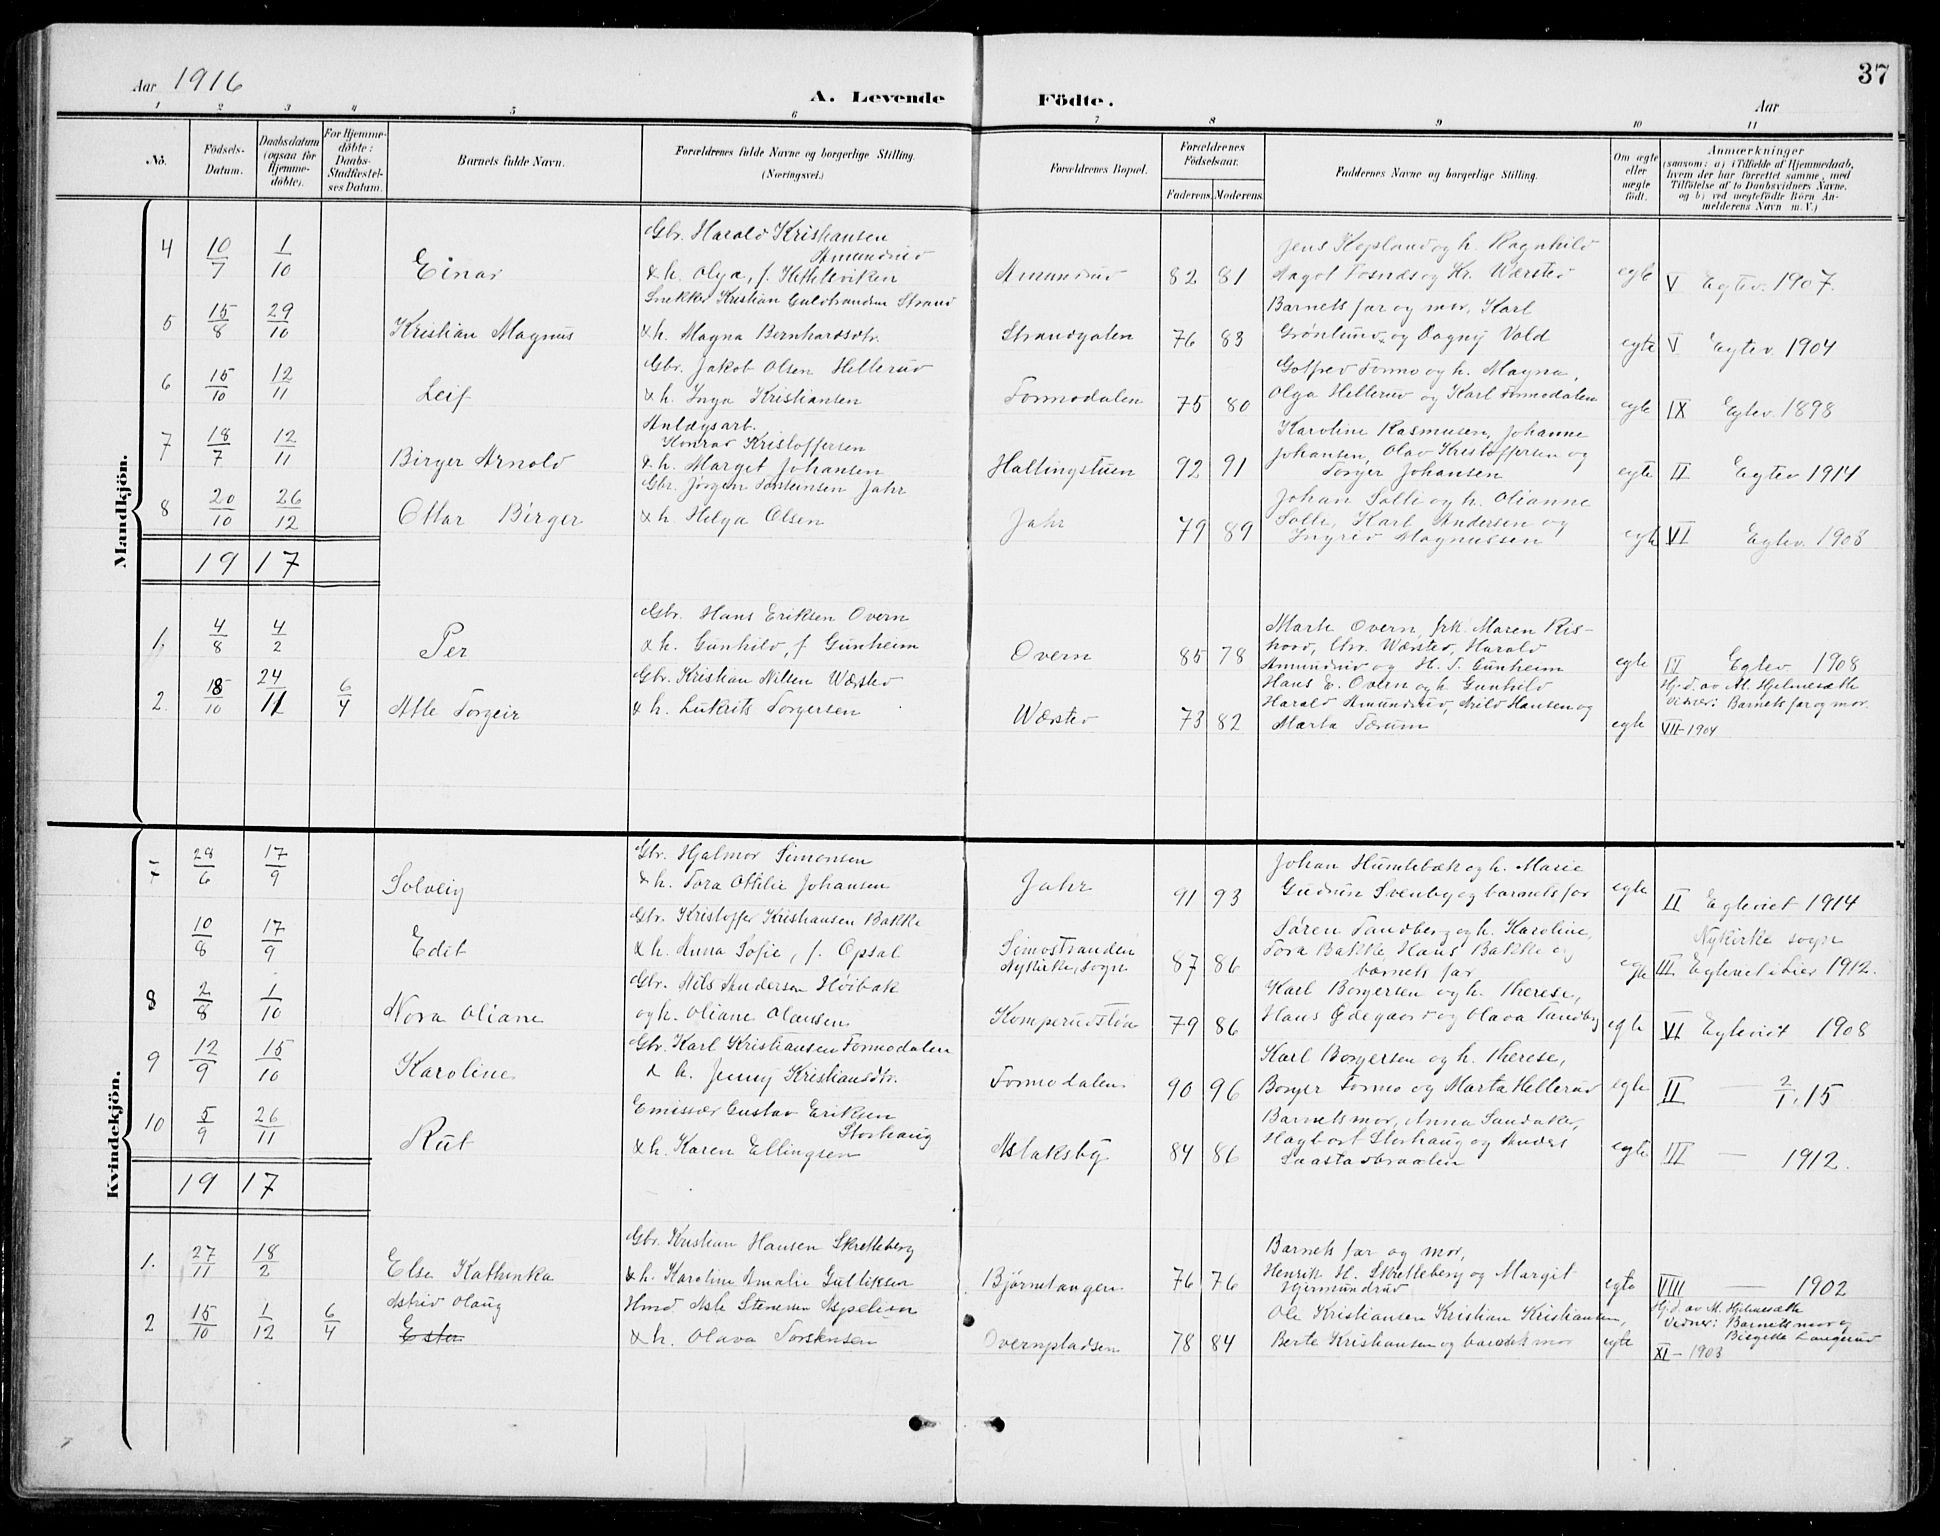 Aar 1916
A. Levende Födte.
Aar
37
1 2 3 4 5 6 7 8 9 10 11
No.
Födsels-Datum.
Daabsdatum (ogsaa för Hjemme-döbte).
For Hjemme-döbte: Daabs-Stadfæstel-ses Datum.
Barnets fulde Navn.
Forældrenes fulde Navne og borgerlige Stilling. (Næringsvei.)
Forældrenes Bopæl.
Forældrenes Födselsaar.
Faderens. Moderens.
Faddernes Navne og borgerlige Stilling.
Om ægte eller uægte födt.
Anmærkninger
(saasom: a) i Tilfælde af Hjemmedaab, hvem der har forrettet samme, med Tilföielse af to Daabsvidners Navne, og b) ved uægtefödte Börn An-melderens Navn m. V.)
Mandkjön.
4 10/7 1/10 Einar
Gbr. Harald Kristiansen Amundrud
& h. Olga, f. Ketilsviken
Amundrud 82 81
Jens Kopland og h. Ragnhild
Aagot Fosnæs og Kr. Wærsted
egte V Egtev. 1907.
5 15/8 29/10 Kristian Magnus
Snekker Kristian Guldbrandsen Strand
& h. Magna Bernhardsdtr.
Strandgaten 76 83
Barnets far og mor, Karl
Grønlund og Dagny Vold
egte V Egtev. 1904
6 15/10 12/11 Leif
Gbr. Jakob Olsen Hellerud
& h. Inga Kristiansen
Formodalen 75 80
Gotfred Formo og h. Magna,
Olga Hellerud og Karl Formodalen
egte IX Egtev. 1898
7 18/7 12/11 Birger Arnold
Anlægsarb.
Konrad Kristoffersen
& h. Margit Johansen
Hallingstuen 92 91
Karoline Rasmusen, Johanne
Johansen, Olav Kristoffersen og
Torger Johansen
egte II Egtev 1914
8 20/10 26/12 Ottar Birger
Gbr. Jørgen Torsteinsen Jahr
& h. Helga Olsen
Jahr 79 89
Johan Solli og h. Olianne
Solli, Karl Andersen og
Ingrid Magnussen
egte VI Egtev. 1908
1917
1. 4/8 4/2 Per
Gbr. Hans Eriksen Overn
& h. Gunhild, f Gunheim
Overn 85 78
Marte Overn, frk. Maren Ris-
Chr. Wærsted, Harald
Amundrud og H. T. Gunheim
egte IV Egtev 1908
2. 18/10 24/11 6/4 Atle Torgeir
Gbr. Kristian Nilsen Wærsted
& h. Lukrits Torgersen
Wærsted 73 82
Hans E. Overn og h. Gunhild
Harald Amundrud, Arild Hansen og
Marta Tærum
egte
Hj. d. av M. Hjelmesæth
Vidner: Barnets far og mor.
VII-1904
Kvindekjön.
7 28/6 17/9 Solveig
Gbr. Hjalmar Simensen
& h. Tora Otthilie Johansen
Jahr 91 93
Johan Humlebæk og h. Marie
Gudrun Svenby og barnets far
egte II Egteviet 1914
10/8 17/9 Edit
Gbr. Kristoffer Kristiansen Bakke
& h. Anna Sofie, f. Opsal
Simostranden
Nykirke, sogn 87 86
Søren Tandberg og h. Karoline,
Tora Bakke Hans Bakke og
barnets far
egte
Nykirke sogn
III Egteviet i Lier 1912.
8 2/8 1/10 Nora Oliane
Gbr. Nils Andersen Høibak
og h. Oliane Olausen
Komperudstøa 79 86
Karl Borgersen og h. Therese,
Hans Ødegaard og Olava Tandberg
egte VI Egteviet 1908
9 12/9 15/10 Karoline
Gbr. Karl Kristiansen Formodalen
& h. Jenny Kristiansdtr.
Formodalen 90 96
Karl Borgersen og h. Therese,
Borger Formo og Marta Hellerud
egte II — 2/1. 15
10 5/9 26/11 Rut
Emissær Gustav Eriksen
Storhaug
& h. Karen Ellingsen
Aslaksby 84 86
Barnets mor, Anna Sandaker,
Hagbart Storhaug og Anders
Saastadbraaten
egte III — 1912.
1917
1. 27/11 18/2 Else Kathinka
Gbr. Kristian Hansen Skretteberg
& h. Karoline Amalie Gulliksen
Bjørnetangen 76 76
Barnets far og mor,
Henrik H. Skretteberg og Margit
Hermundrud
egte VIII — 1902
2 15/10 1/12 6/4 Astrid Olaug
Ester
Hmd Asle Stenersen Aspelien
& h. Olava Torstensen
Overnpladsen 78 84
Ole Kristiansen Kristian Kristiansen,
Berte Kristiansen og barnets mor
egte
Hj. d. av M. Hjelmesæth
Vidner: Barnets mor og
Langerud
XI - 1903